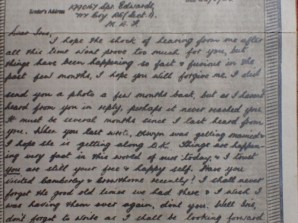 Sender's Address
Edwards,
M.E.F.
Dear
I hope the shock of hearing from me after
all this time wont prove too much for you, but
things have been happening so fast & furious in the
past few months, I hope you will forgive me. I did
send you a photo a few months back, but as I havent
heard from you in reply, perhaps it never reached you.
It must be several months since I last heard from
you. When you last wrote, was getting married
I hope she is getting along O.K. Things are happen-
ing very fast in this world of ours today, & I trust
you are still your free & happy self. Have you
visited & recently? I shall never
forget the good old times we had there & I wish I
was having them over again, dont you. Well
dont forget to write as I shall be looking forward